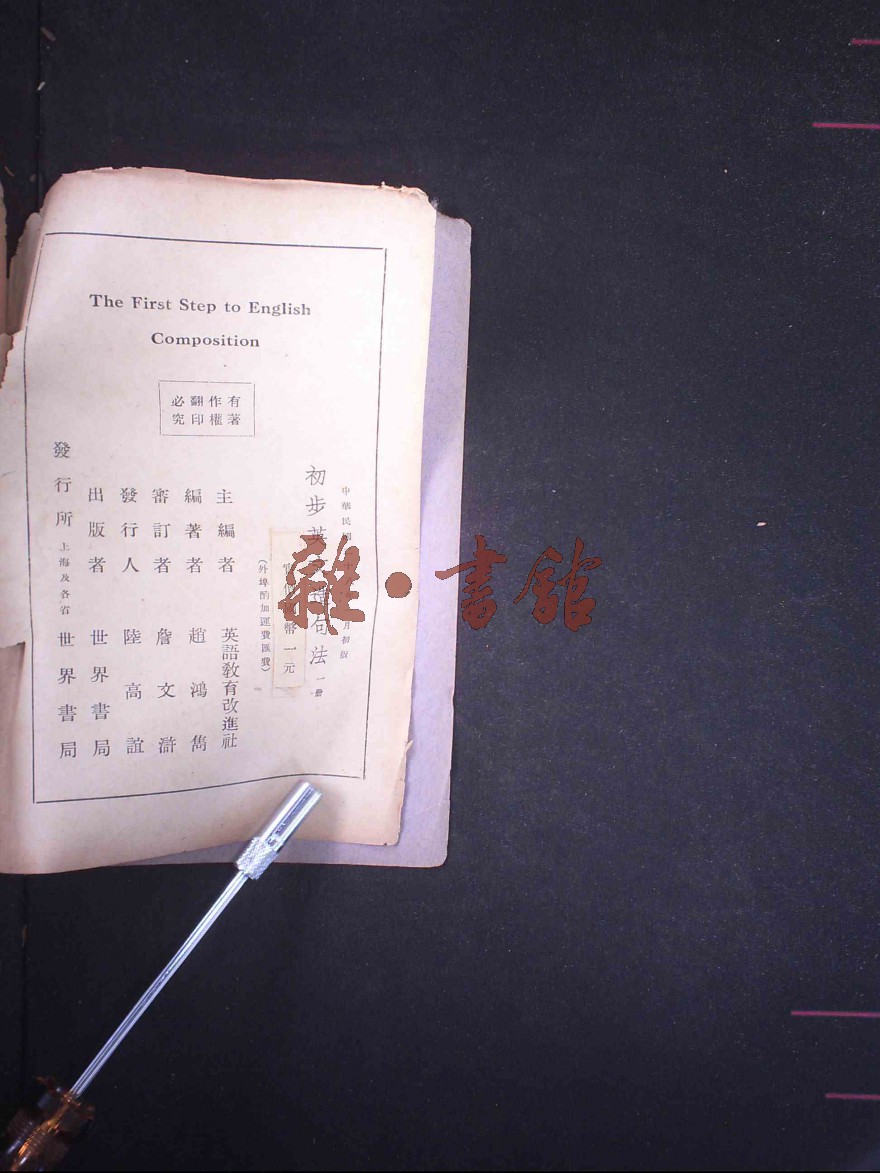 The First Step to English
Composition
有著
作權
翻印
必究
中華民國
月初版
初步英
句法
一冊
幣一元
(外埠酌加運費匯費)
主編者 英語教育改進社
編著者 趙鴻雋
審訂者 詹文滸
發行人 陸高誼
出版者 世界書局
發行所 上海及各省 世界書局
雜·書館